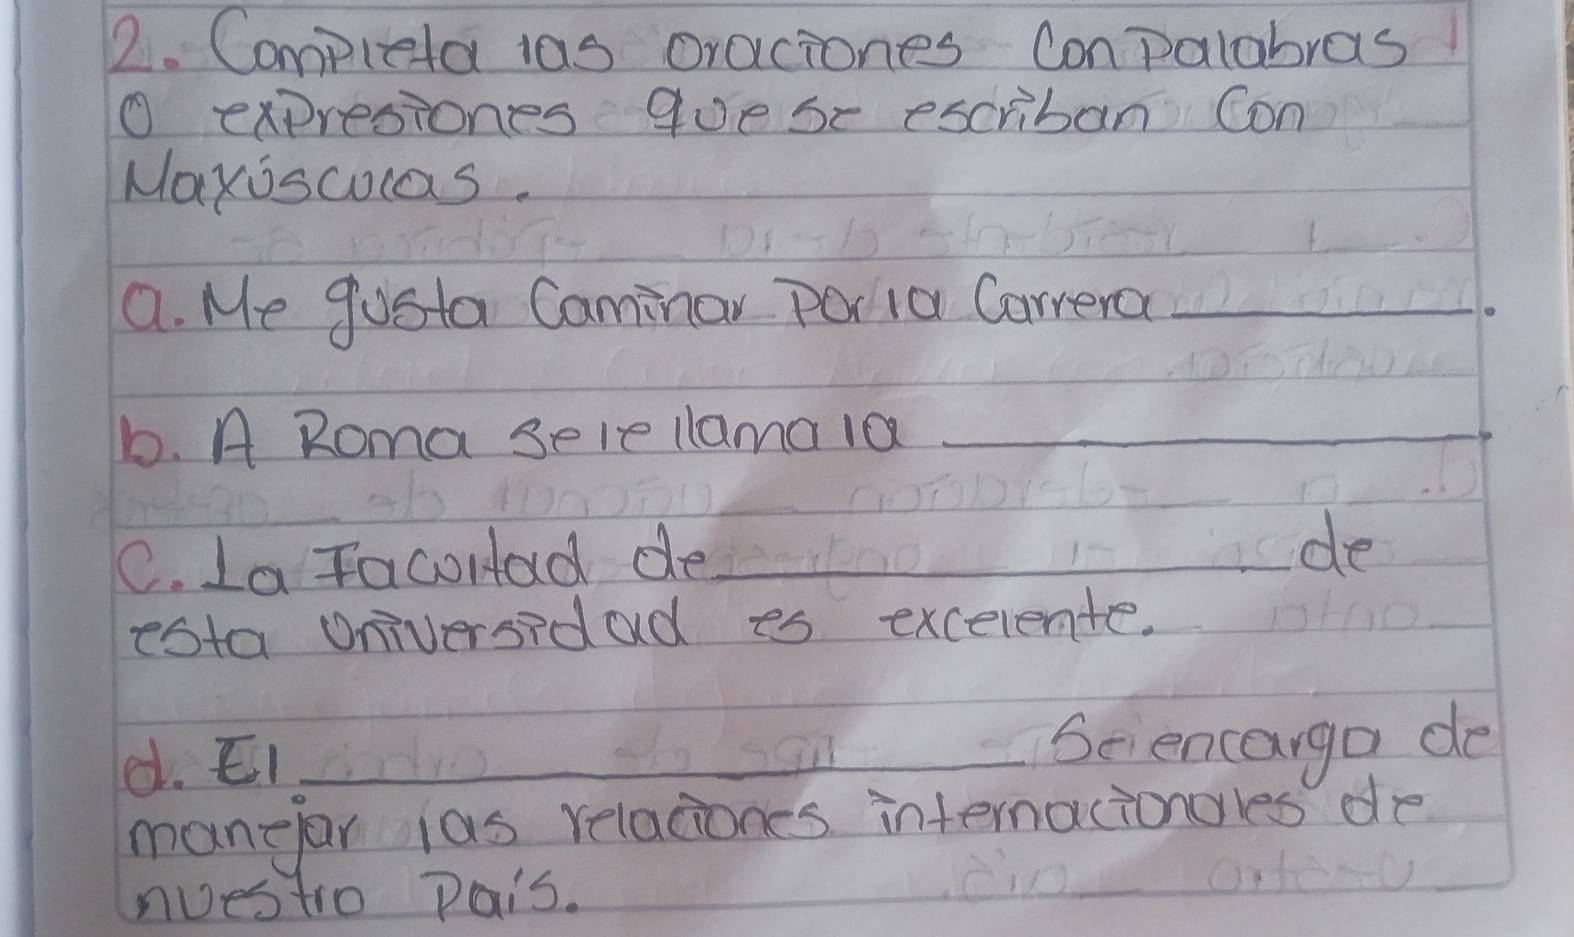 2. Completa las oraciones con palabras
o expresiones que se escriban con
Mayúsculas.
a. Me gusta caminar por la Carrera ____.
b. A Roma se le llama la ____
c. La Facultad de ____ de
esta universidad es excelente.
d. El ____ se encarga de
manejar las relaciones internacionales de
nuestro país.